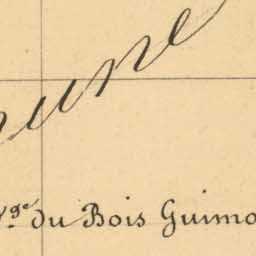 une
Vge du Bois Guimo